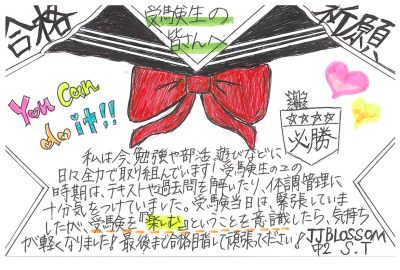 合格
受験生の
皆さんへ
祈願
You Can
do it!!
必勝
私は今、勉強や部活、遊びなどに
日々全力で取り組んでいます！受験生のこの
時期は、テキストや過去問を解いたり、体調管理に
十分気をつけていました。受験当日は、緊張していま
したが、受験を『楽しむ』ということを意識したら、気持ち
が軽くなりました！最後まで合格目指して頑張ってください！
JJBLOSSOM
中2 S.T